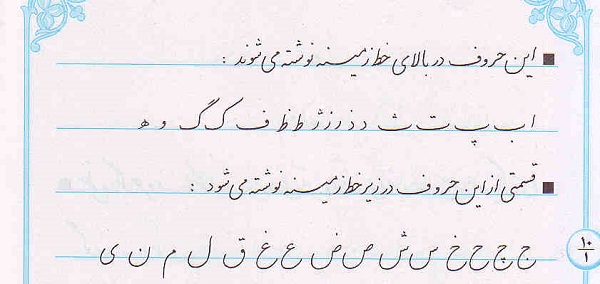 این حروف در بالای خط زمینه نوشته می شوند :
ا ب پ ت ث د ذ ر ز ژ ط ظ ف ک گ و ه
قسمتی از این حروف در زیر خط زمینه نوشته می شود :
ج چ ح خ س ش ص ض ع غ ق ل م ن ی
۱۰
۱